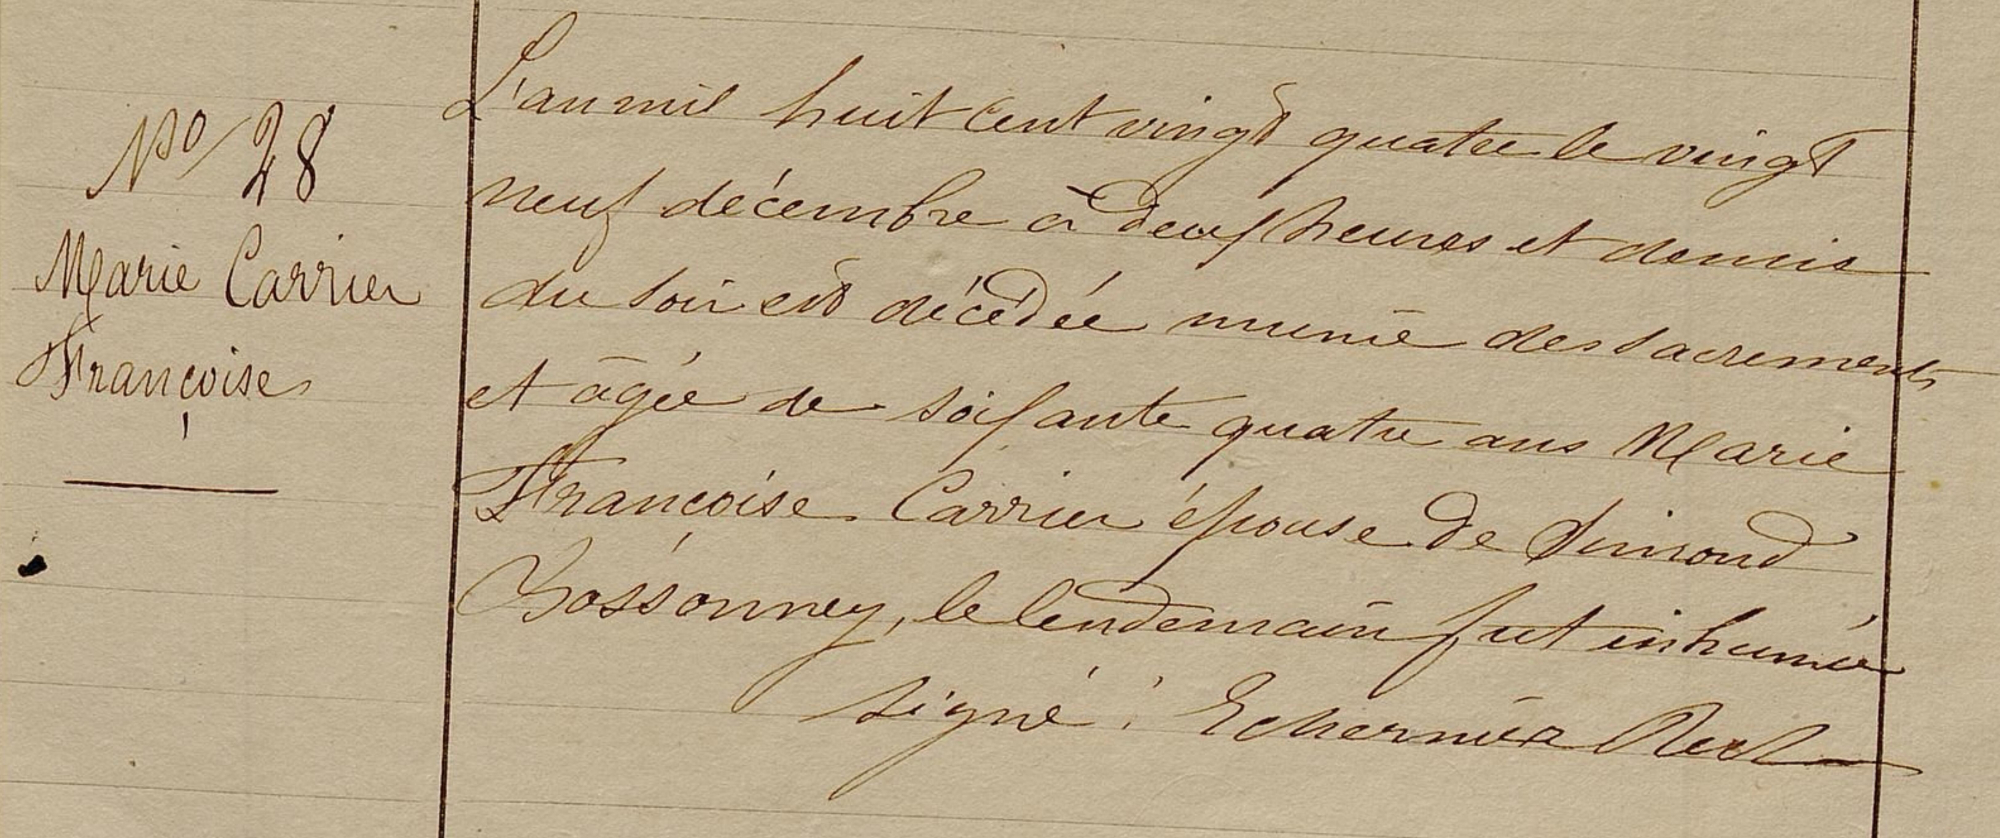 No 28
Marie Carrier
Françoise
L'an mil huit cent vingt quatre le vingt
neuf décembre à deux heures et demie
du soir est décédée munie des sacrements
et âgée de soixante quatre ans Marie
Françoise Carrier épouse de Simond
Bossonney, le lendemain fut inhumée
signé : Rect